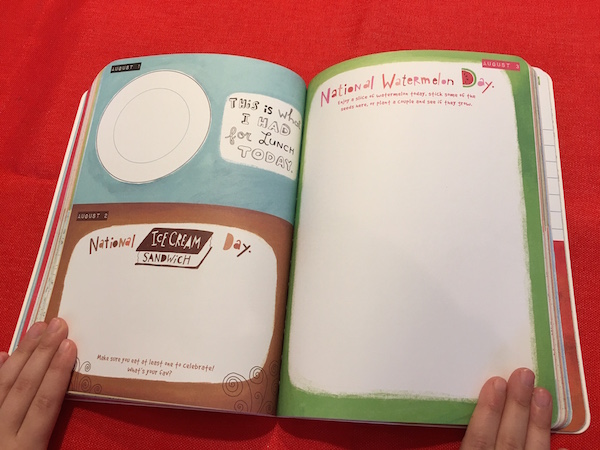 AUGUST 1
THIS is what
I HAD
for LUNCH
TODAY.
AUGUST 2
National ICE CREAM Day.
SANDWICH
Make sure you eat at least one to celebrate!
What's your fav?
AUGUST 3
National Watermelon Day.
Enjoy a slice of watermelon today, stick some of the
seeds here, or plant a couple and see if they grow.